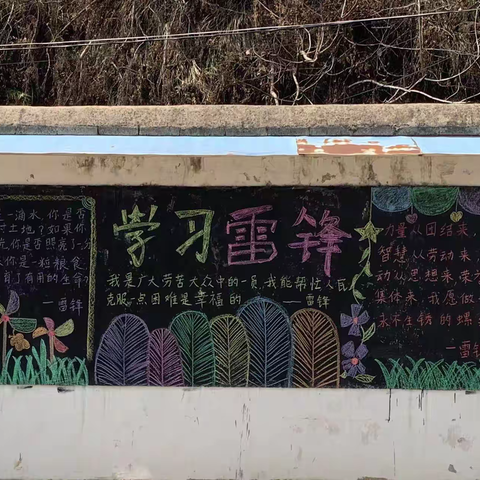 一滴水,你是否
土地?如果你
你是否照亮了一分
你是一粒粮食
有用的生命
—雷锋
学习雷锋
我是广大劳苦大众中的一员,我能帮忙人民
克服一点困难是幸福的
——雷锋
力量从团结来
智慧从劳动来
动从思想来 荣
集体来,我愿做
永不生锈的螺
—雷锋